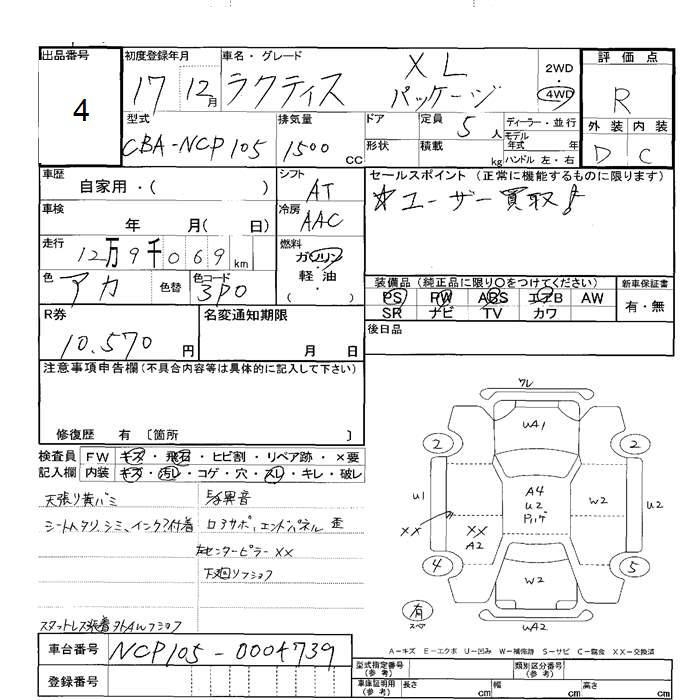 出品番号
4
初度登録年月
17 12月
車名・グレード
ラクティス XL
パッケージ
2WD
・
4WD
評価点
R
外装 内装
D C
型式
CBA-NCP105
排気量
1500 CC
ドア
形状
定員 5 人
積載 kg
ディーラー・並行
モデル
年式 年
ハンドル 左・右
車歴
自家用・( )
シフト
AT
セールスポイント (正常に機能するものに限ります)
☆ユーザー買取!
車検
年 月( 日)
冷房
AAC
走行
12万9千069km
燃料
ガソリン
軽・油
( )
色 アカ 色替
色コード
3P0
装備品 (純正品に限り○をつけてください)
PS PW ABS エアB AW
SR ナビ TV カワ
新車保証書
有・無
R券
10,570円
名変通知期限
月 日
後日品
注意事項申告欄(不具合内容等は具体的に記入して下さい)
修復歴 有 〔箇所 〕
検査員
記入欄
FW キズ・飛石・ヒビ割・リペア跡・×要
内装 キズ・汚レ・コゲ・穴・スレ・キレ・破レ
天張り黄バミ
シートヘタリ、シミ、インク?付着
異音
ロアサポ、エンドパネル 歪
左センターピラー XX
下廻リフショク
スタットレス装着
ワレ
UA1
2 2
U1
A4
U2
W2
U2
XX
XX
A2
4 5
W2
有
スペア
UA2
A-キズ E-エクボ U-凹み W-補修跡 S-サビ C-腐食 XX-交換済
車台番号
NCP105-0004739
登録番号
型式指定番号
(参考)
類別区分番号
(参考)
車庫証明用
(参考)
長さ cm
幅 cm
高さ cm